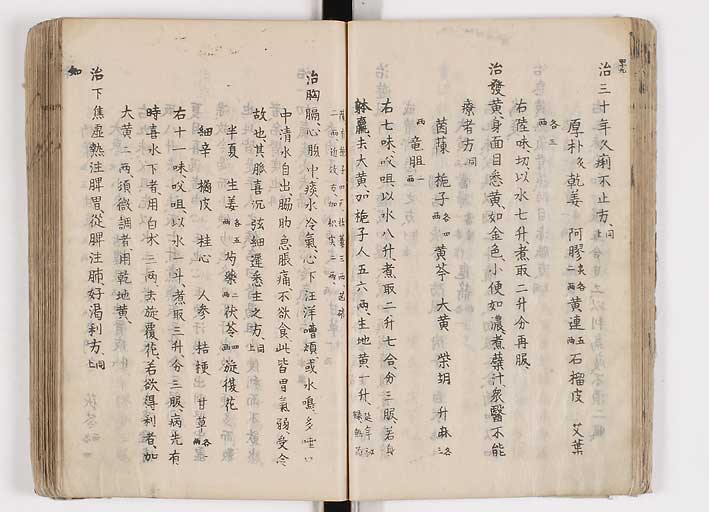 治三十年久痢不止方、同上
厚朴炙乾姜 阿膠炙各二両黄連五両石榴皮 艾葉
各三両
右陸味切以水七升、煮取二升分再服、
治發黄、身面目悉黄如金色、小便如濃煮蘗汁、衆醫不能
療者方、同
茵蔯 梔子各四両黄芩 大黄 柴胡 升麻各三
両 竜胆一両
右七味㕮咀以水八升、煮取二升七合、分三服、若身
羸、去大黄加梔子人五六両、生地黄一升、
治胸膈心腹中痰水冷氣、心下汪洋嘈煩、或水鳴、多唾口
中清水自出、脇肋急脹痛、不欲食、此皆胃氣弱、受冷
故也、其脉喜沉弦細遲悉主之方、同上
半夏 生姜各五両芍薬二両茯苓四両旋覆花
細辛 橘皮 桂心 人参 桔梗 甘草各両
右十一味、㕮咀、以水一斗、煮取三升分三服、病先有
時喜水下者、用白朮三両、去旋覆花、若欲得利者、加
大黄二両、須微調者、用乾地黄、
治下焦虚熱注脾胃、從脾注肺、好渇利方、同上